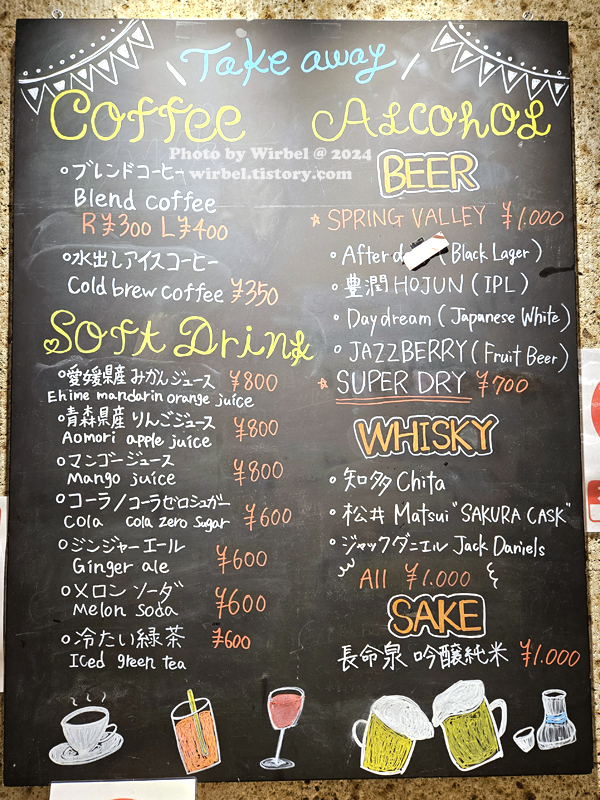 Take away
Coffee
Photo by Wirbel @ 2024
wirbel.tistory.com
ブレンドコーヒー
Blend coffee
R ¥300 L ¥400
水出しアイスコーヒー
Cold brew coffee ¥350
Soft Drink
愛媛県産みかんジュース ¥800
Ehime mandarin orange juice
青森県産りんごジュース ¥800
Aomori apple juice
マンゴージュース ¥800
Mango juice
コーラ/コーラゼロシュガー ¥600
Cola Cola zero sugar
ジンジャーエール ¥600
Ginger ale
メロンソーダ ¥600
Melon soda
冷たい緑茶 ¥600
Iced green tea
Alcohol
BEER
SPRING VALLEY ¥1,000
After (Black Lager)
豊潤 HOJUN (IPL)
Daydream (Japanese White)
JAZZBERRY (Fruit Beer)
SUPER DRY ¥700
WHISKY
知多 Chita
松井 Matsui "SAKURA CASK"
ジャックダニエル Jack Daniels
All ¥1.000
SAKE
長命泉 吟醸純米 ¥1.000